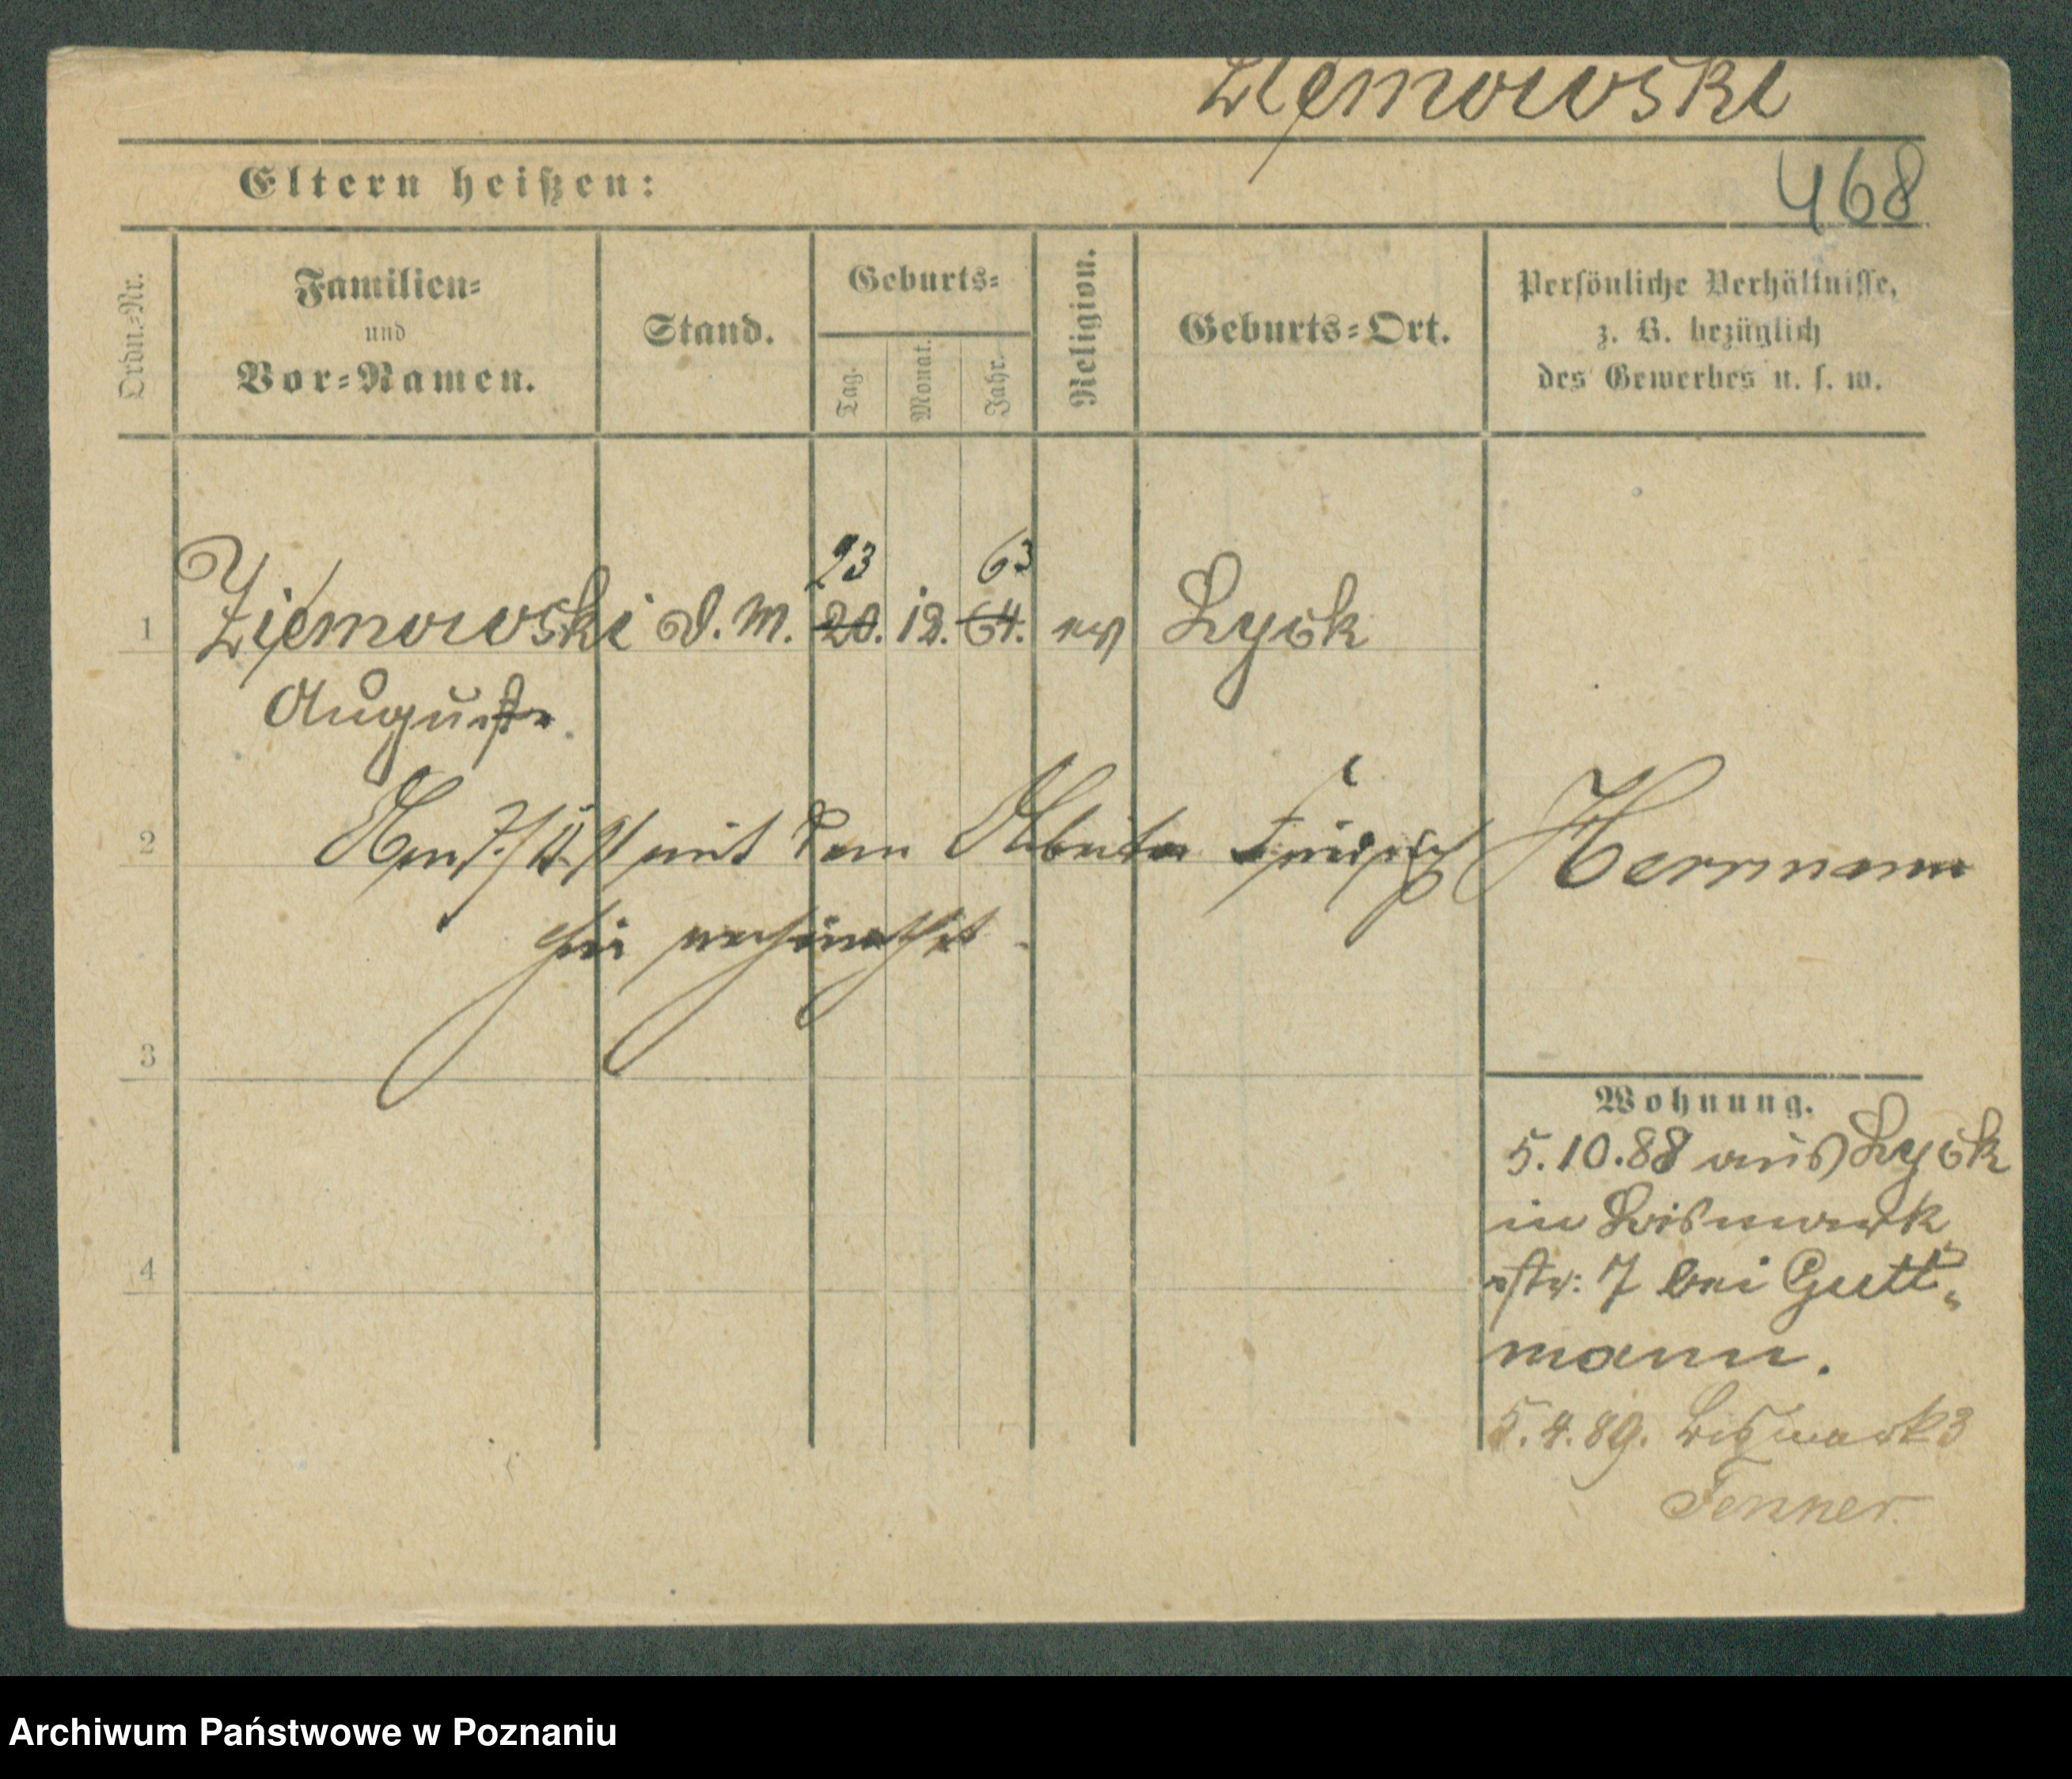 Ziemowski
468
Eltern heißen:
Ordn.-Nr.
Familien-
und
Vor-Namen.
Stand.
Geburts-
Tag.
Monat.
Jahr.
Religion.
Geburts-Ort.
Persönliche Verhältnisse,
z. B. bezüglich
des Gewerbes u. s. w.
23 63
1 Ziemowski D. M. 20. 12. 64. ev Lyck
Auguste.
2 Am mit dem Arbeiter Friedrich Herrmann
hier verheirathet.
3
Wohnung.
5.10.88 aus Lyck
in Bismark
4
str: 7 bei Gutt-
mann.
5.4.89. Bismark 3
Fenner.
Archiwum Państwowe w Poznaniu